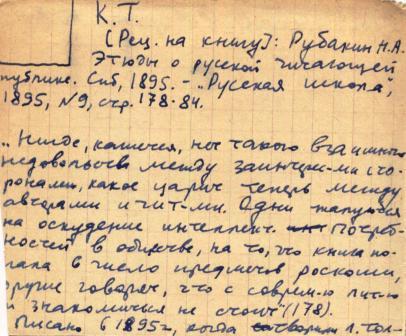 К. Т.
[Рец. на книгу]: Рубакин Н.А.
Этюды о русской читающей
публике. Спб, 1895. - „Русская школа",
1895, №9, стр. 178-84.
„Нигде, кажется, нет такого взаимного
недовольства между заинтерес-ми сто-
ронами, какое царит теперь между
авторами и чит-ми. Одни жалуются
на оскудение интеллект. потреб-
ностей в обществе, на то, что книга по-
пала в число предметов роскоши,
другие говорят, что с соврем-ю лит-ю
и знакомиться не стоит" (178).
Писано в 1895 г., когда творили Л. Тол-